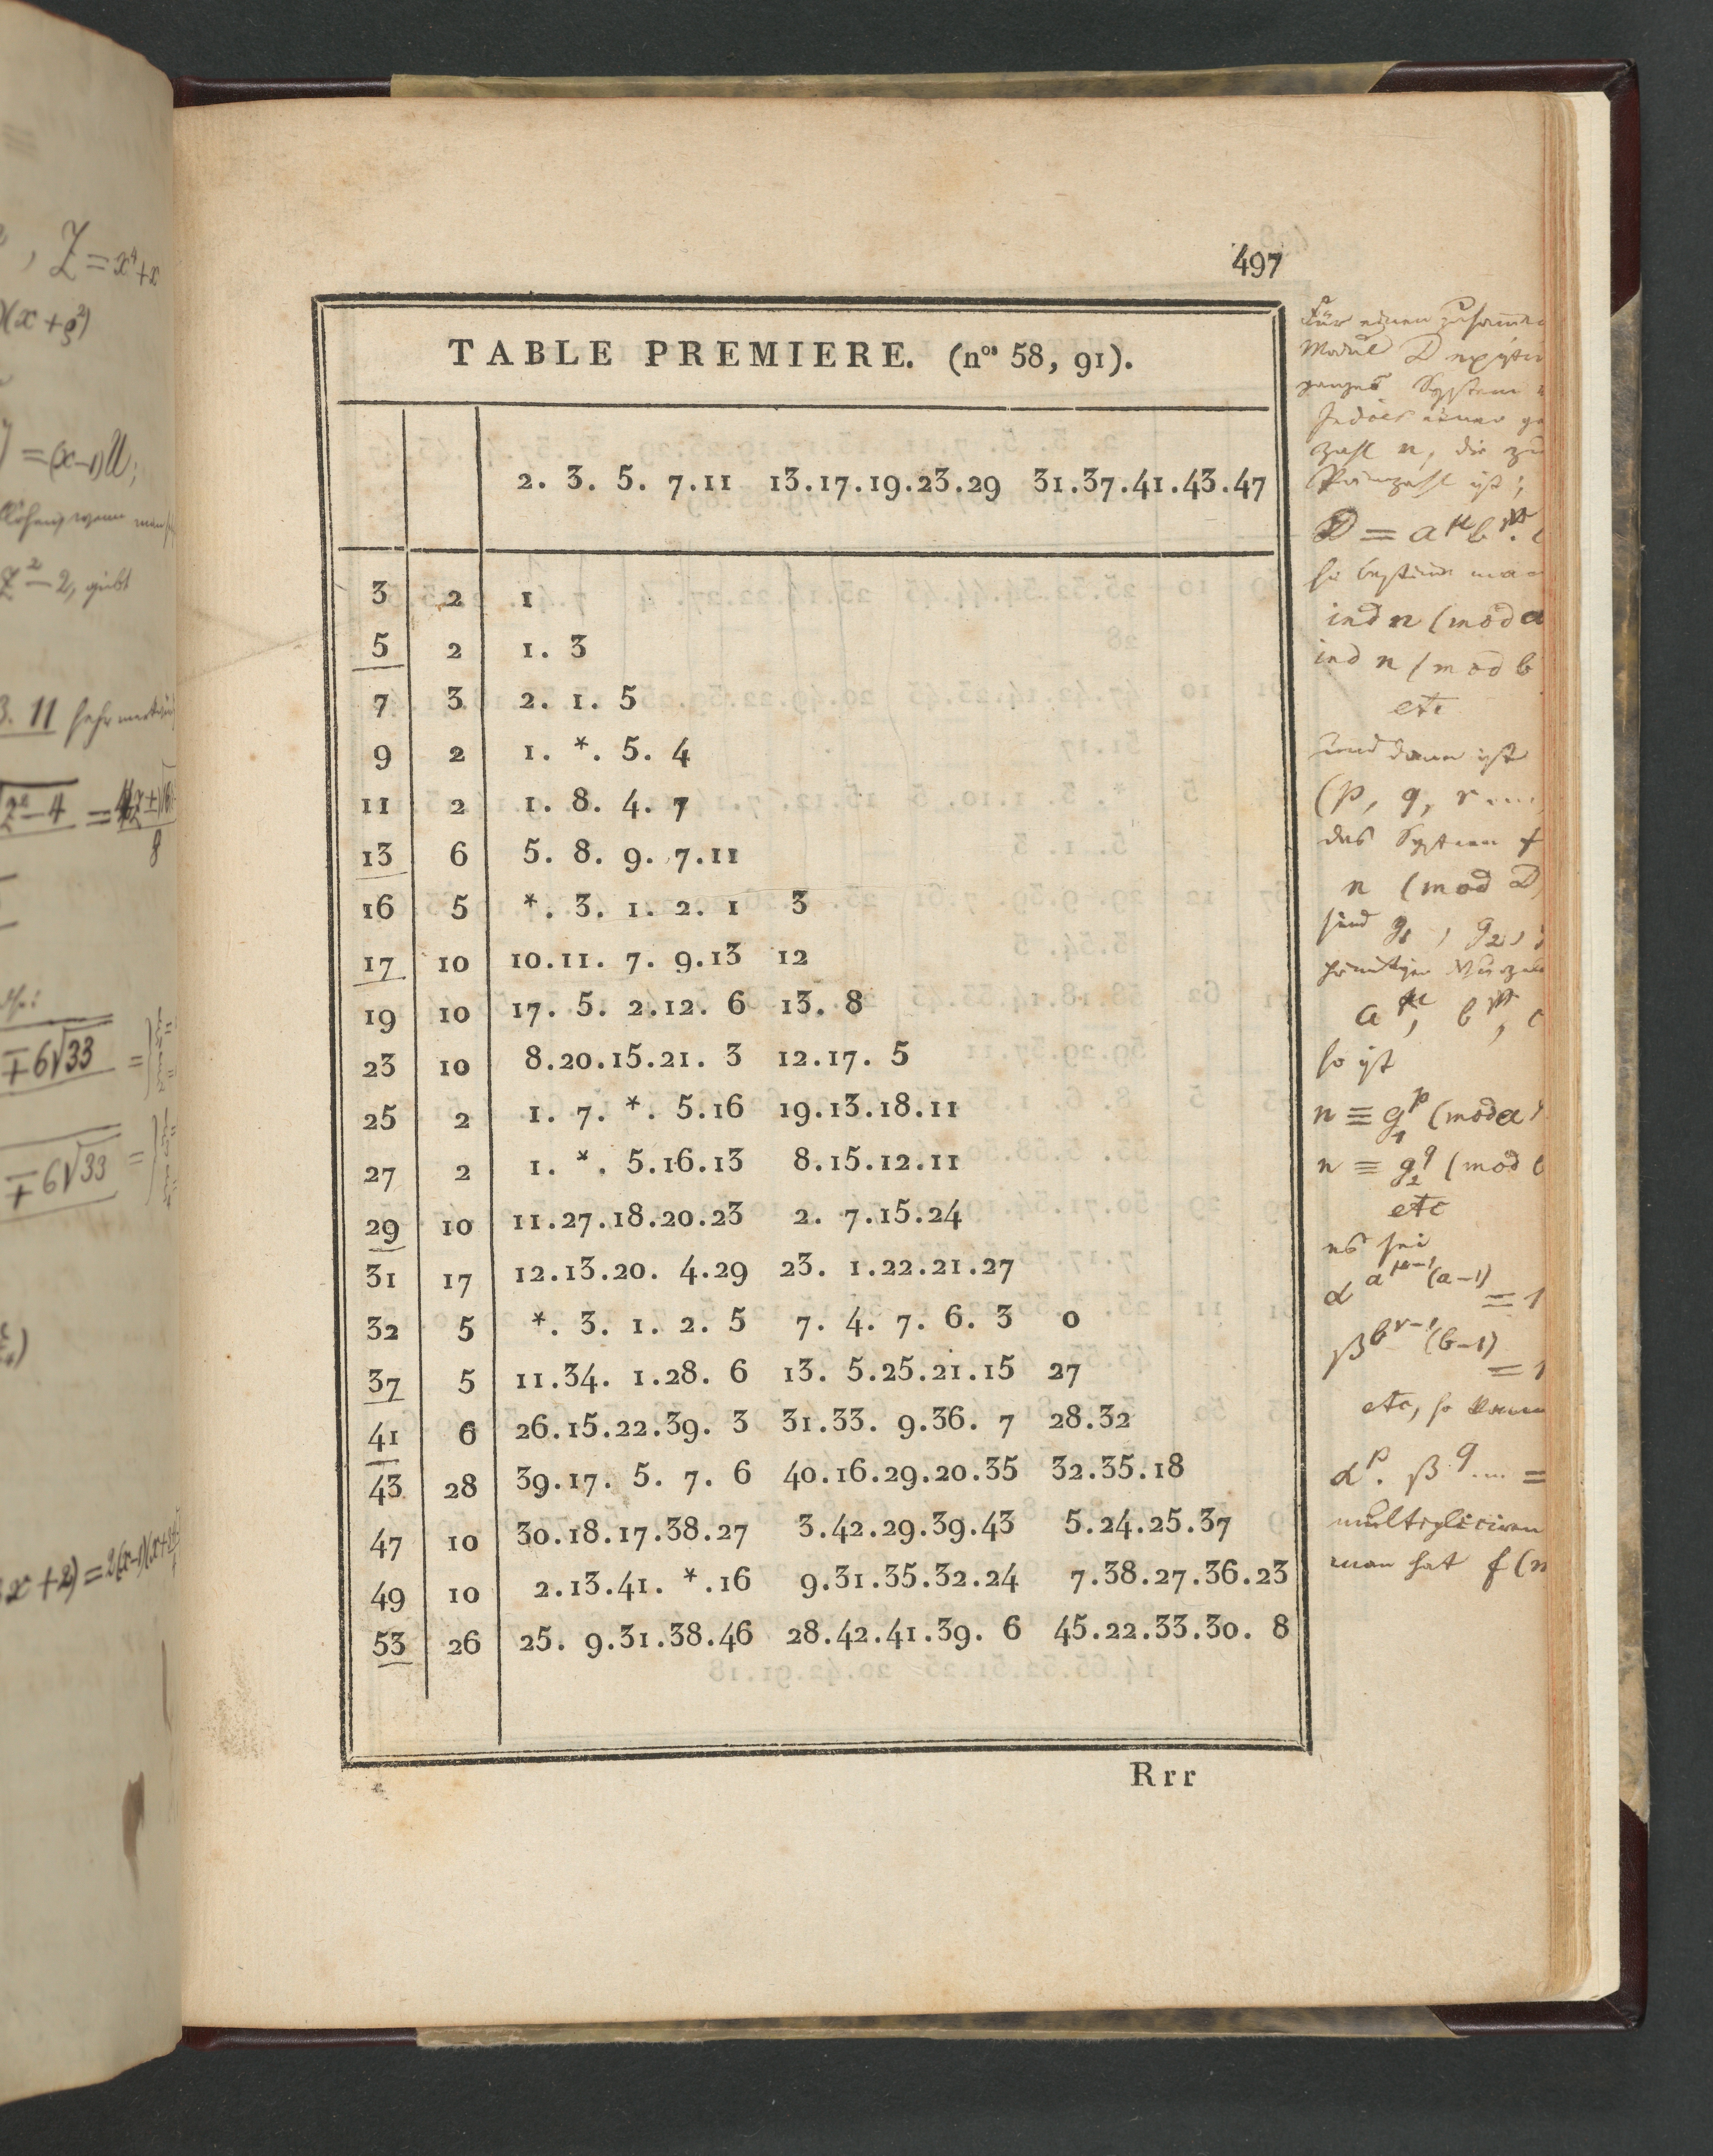 , Z = x⁴ + x
)(x + ρ²)
= (x−1)U;
Z² − 2, giebt
3. 11
∓ 6√33 =
∓ 6√33 =
497
TABLE PREMIERE. (nos 58, 91).
2. 3. 5. 7.11 13.17.19.23.29 31.37.41.43.47
3 2 1
5 2 1. 3
7 3 2. 1. 5
9 2 1. *. 5. 4
11 2 1. 8. 4. 7
13 6 5. 8. 9. 7.11
16 5 *. 3. 1. 2. 1 3
17 10 10.11. 7. 9.13 12
19 10 17. 5. 2.12. 6 13. 8
23 10 8.20.15.21. 3 12.17. 5
25 2 1. 7. *. 5.16 19.13.18.11
27 2 1. *. 5.16.13 8.15.12.11
29 10 11.27.18.20.23 2. 7.15.24
31 17 12.13.20. 4.29 23. 1.22.21.27
32 5 *. 3. 1. 2. 5 7. 4. 7. 6. 3 0
37 5 11.34. 1.28. 6 13. 5.25.21.15 27
41 6 26.15.22.39. 3 31.33. 9.36. 7 28.32
43 28 39.17. 5. 7. 6 40.16.29.20.35 32.35.18
47 10 30.18.17.38.27 3.42.29.39.43 5.24.25.37
49 10 2.13.41. *.16 9.31.35.32.24 7.38.27.36.23
53 26 25. 9.31.38.46 28.42.41.39. 6 45.22.33.30. 8
Rrr
Für einen
Modul D
ganzes System
Indices einer
Zahl n, die zu
Primzahl ist;
ind n (mod a
ind n (mod b
etc
und dann ist
(p, q, r ....
das System
n (mod D
sind g₁, g₂,
so ist
n ≡ g₁ᵖ (mod a
n ≡ g₂^q (mod b
etc
es sei
α^(a^(μ−1)(a−1)) = 1
β^(b^(ν−1)(b−1)) = 1
etc, so
αᵖ. β^q .... =
multipliciren
man hat f(n